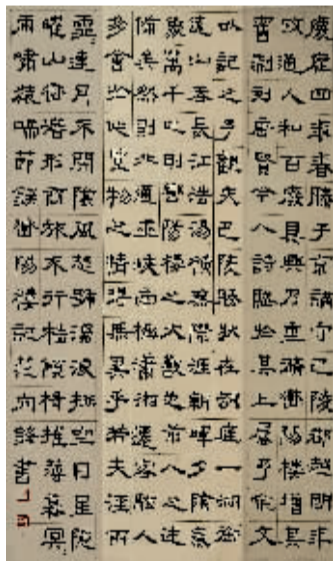 慶曆四年春滕子京謫守巴陵郡越明年
政通人和百廢具興乃重修岳陽樓增其
舊制刻唐賢今人詩賦於其上屬予作文
以記之予觀夫巴陵勝狀在洞庭一湖銜
遠山吞長江浩浩湯湯橫無際涯朝暉夕陰氣
象萬千此則岳陽樓之大觀也前人之述
備矣然則北通巫峽南極瀟湘遷客騷人
多會於此覽物之情得無異乎若夫淫雨
霏霏連月不開陰風怒號濁浪排空日星隱
曜山岳潛形商旅不行檣傾楫摧薄暮冥冥
虎嘯猿啼節錄岳陽樓記向書